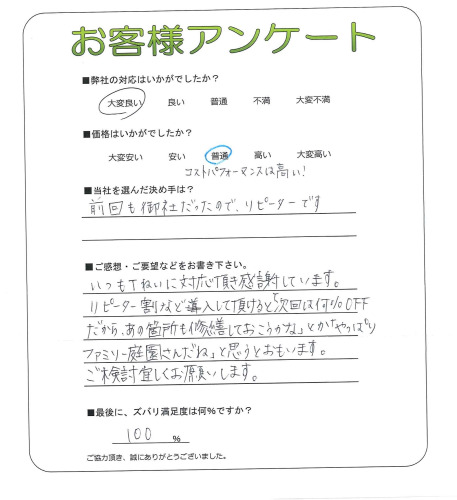 お客様アンケート
■弊社の対応はいかがでしたか？
大変良い 良い 普通 不満 大変不満
■価格はいかがでしたか？
大変安い 安い 普通 高い 大変高い
コストパフォーマンスは高い！
■当社を選んだ決め手は？
前回も御社だったので、リピーターです
■ご感想・ご要望などをお書き下さい。
いつもていねいに対応頂き感謝しています。
リピーター割など導入して頂けると「次回は何％OFF
だから、あの箇所も修繕しておこうかな」とか「やっぱり
ファミリー庭園さんだね」と思うとおもいます。
ご検討宜しくお願いします。
■最後に、ズバリ満足度は何％ですか？
100 %
ご協力頂き、誠にありがとうございました。